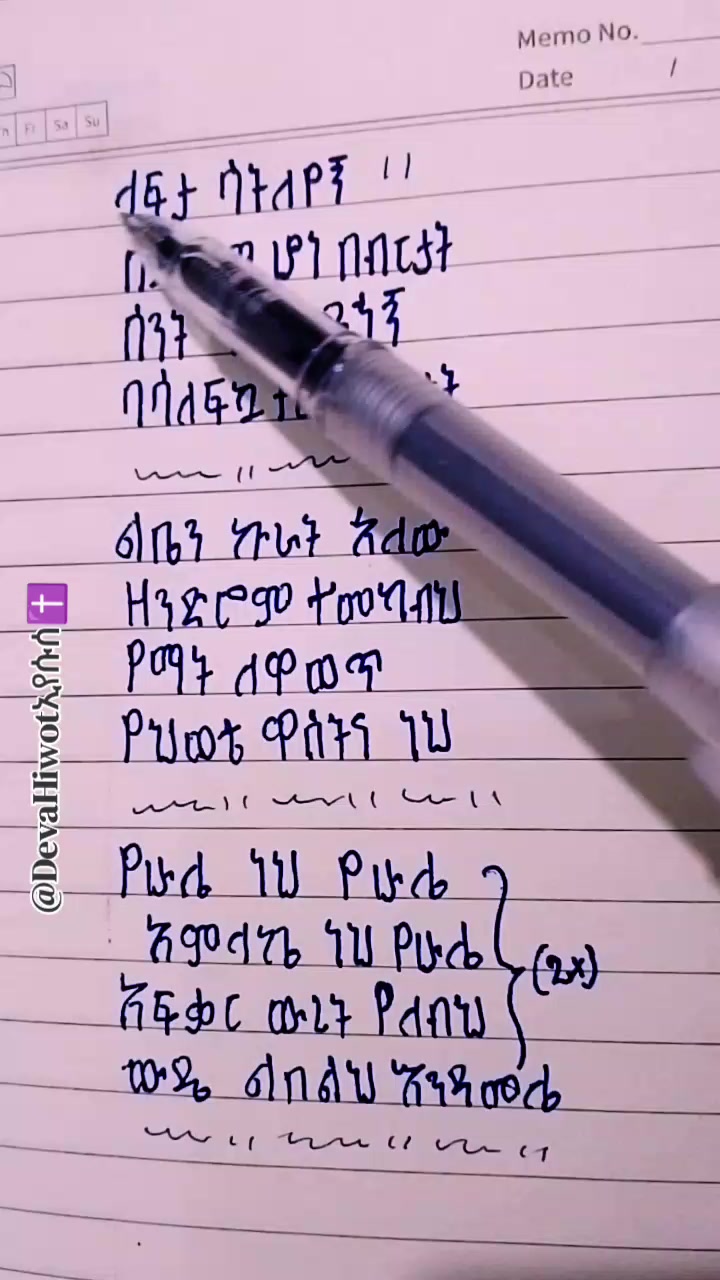 Memo No.
Date /
Fr Sa Su
ለፍታ ሳትለየኝ ።
ሆነ በብርታት
ስንት
ባሳለፍኳ
ልቤን ኩራት አለው
ዘንድሮም ተመካብህ
የማትለዋወጥ
የህወቴ ዋስትና ነህ
የሁሌ ነህ የሁሌ
አምላኬ ነህ የሁሌ
(2x)
አፍቃር ውሪት የለብህ
ውዴ ልበልህ እንዳመሌ
@DevaHiwotኢየሱስ✝️